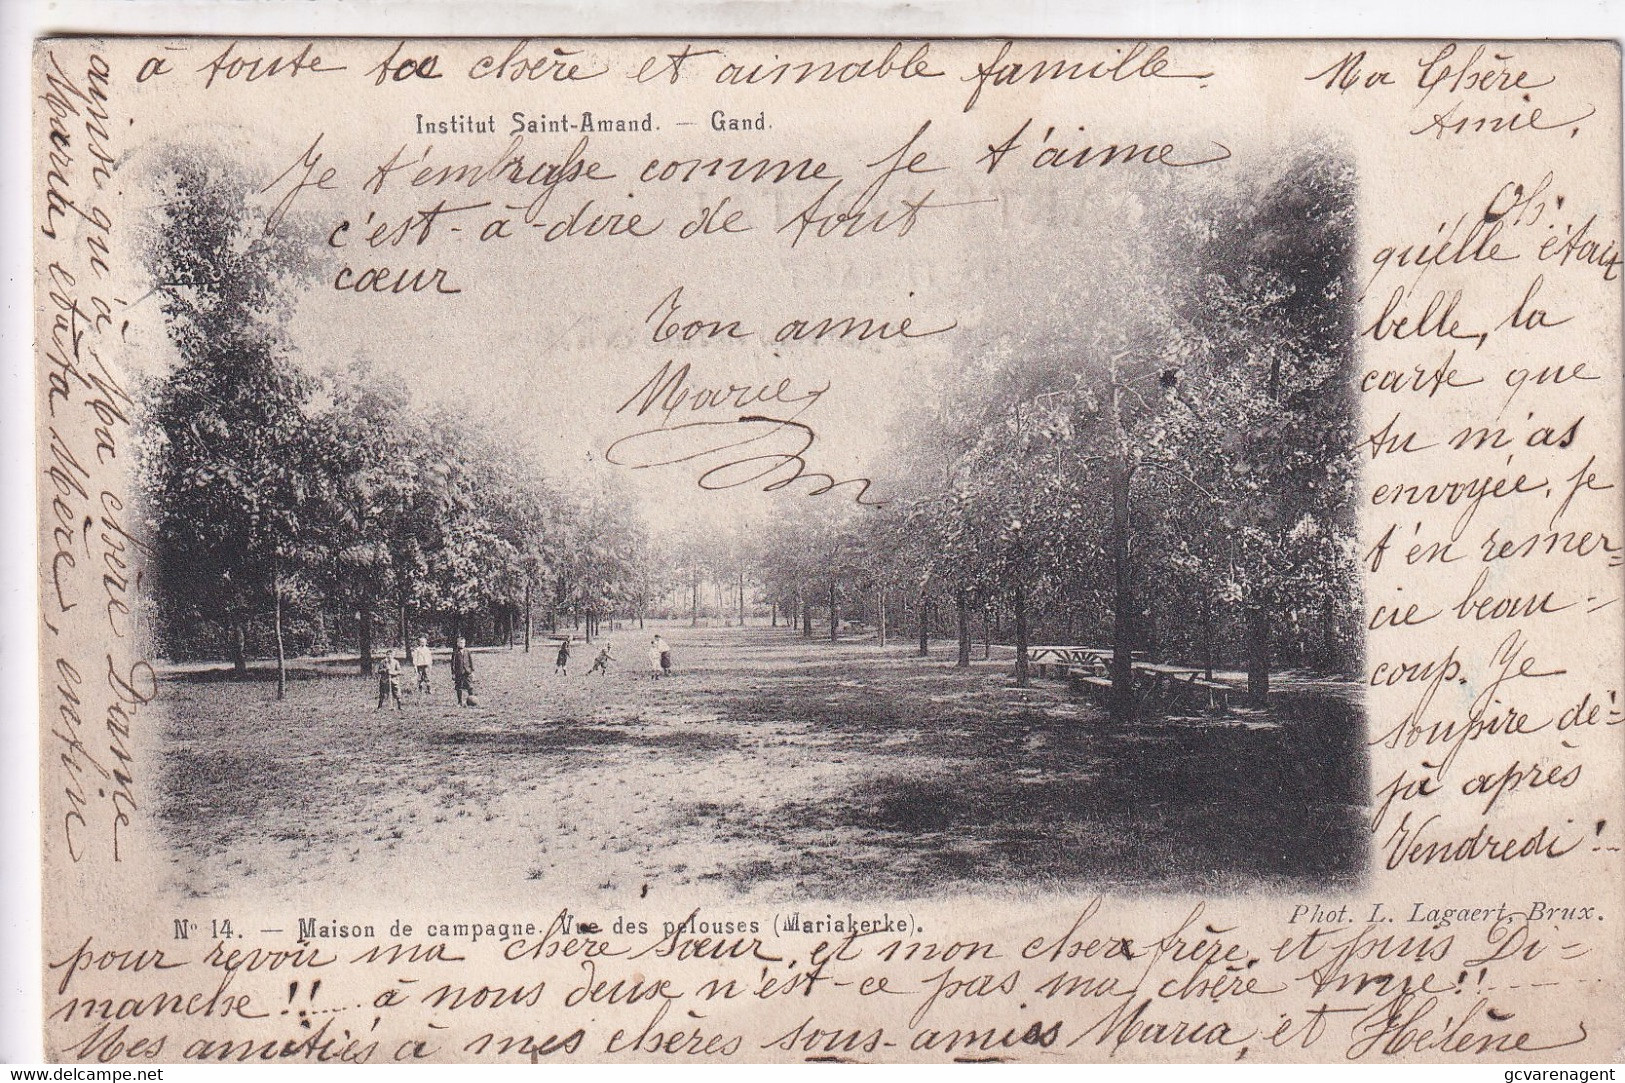 Ma Chère
Amie,
Oh!
qu'elle était
belle, la
carte que
tu m'as
envoyée. Je
t'en remer=
cie beau-
coup. Je
soupire dé-
jà après
Vendredi!
pour revoir ma chère sœur, et mon cher frère, et puis Di=
manche!!.... à nous deux n'est-ce pas ma chère Amie!!
Mes amitiés à mes chères sous-amies Maria, et Hélène
ainsi qu'à Ma chère Dame
Maria, et à ta Mère, enfin
à toute ta chère et aimable famille.
Je t'embrasse comme je t'aime
c'est-à-dire de tout
cœur
Ton amie
Marie
Institut Saint-Amand. — Gand.
N° 14. — Maison de campagne. Vue des pelouses (Mariakerke).
Phot. L. Lagaert, Brux.
delcampe.net
gcvarenagent